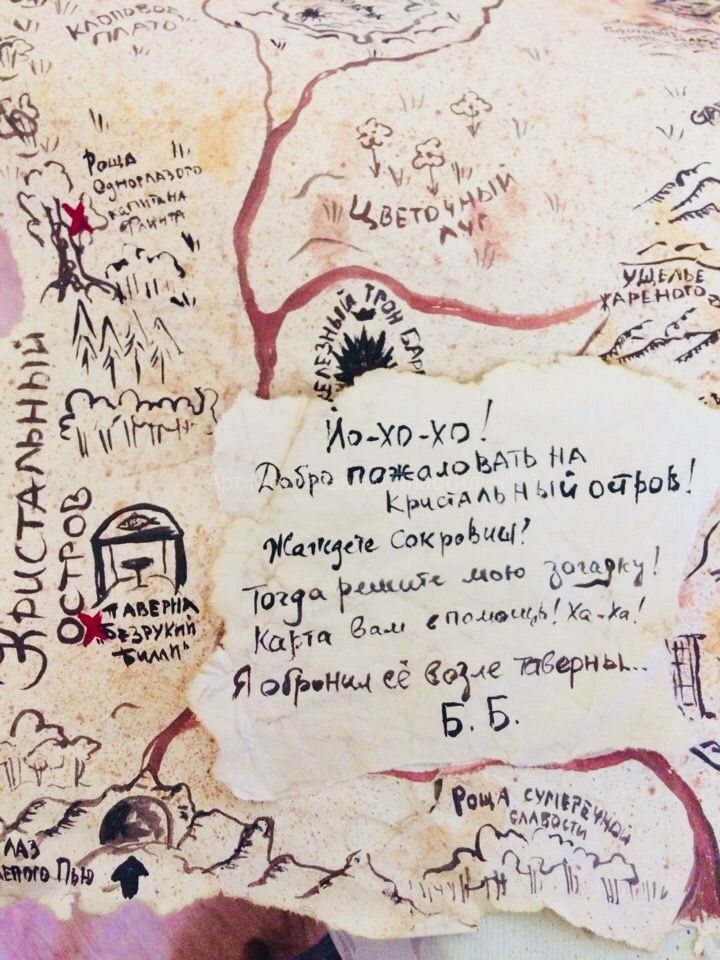 КЛОПОВОЕ
ПЛАТО
РОЩА
ОДНОГЛАЗОГО
КАПИТАНА
ФЛИНТА
ЦВЕТОЧНЫЙ
ЛУГ
УЩЕЛЬЕ
ЖАРЕНОГО
ЖЕЛЕЗНЫЙ ТРОН БАР
КРИСТАЛЬНЫЙ
ОСТРОВ
ТАВЕРНА
"БЕЗРУКИЙ
БИЛЛИ"
Йо-хо-хо!
Добро пожаловать на
Кристальный остров!
Жаждете сокровищ?
Тогда решите мою загадку!
Карта вам в помощь! Ха-ха!
Я обронил её возле таверны..
Б. Б.
РОЩА СУМЕРЕЧНОЙ
СЛАБОСТИ
ЛАЗ
ЛЕПОГО ПЬЮ